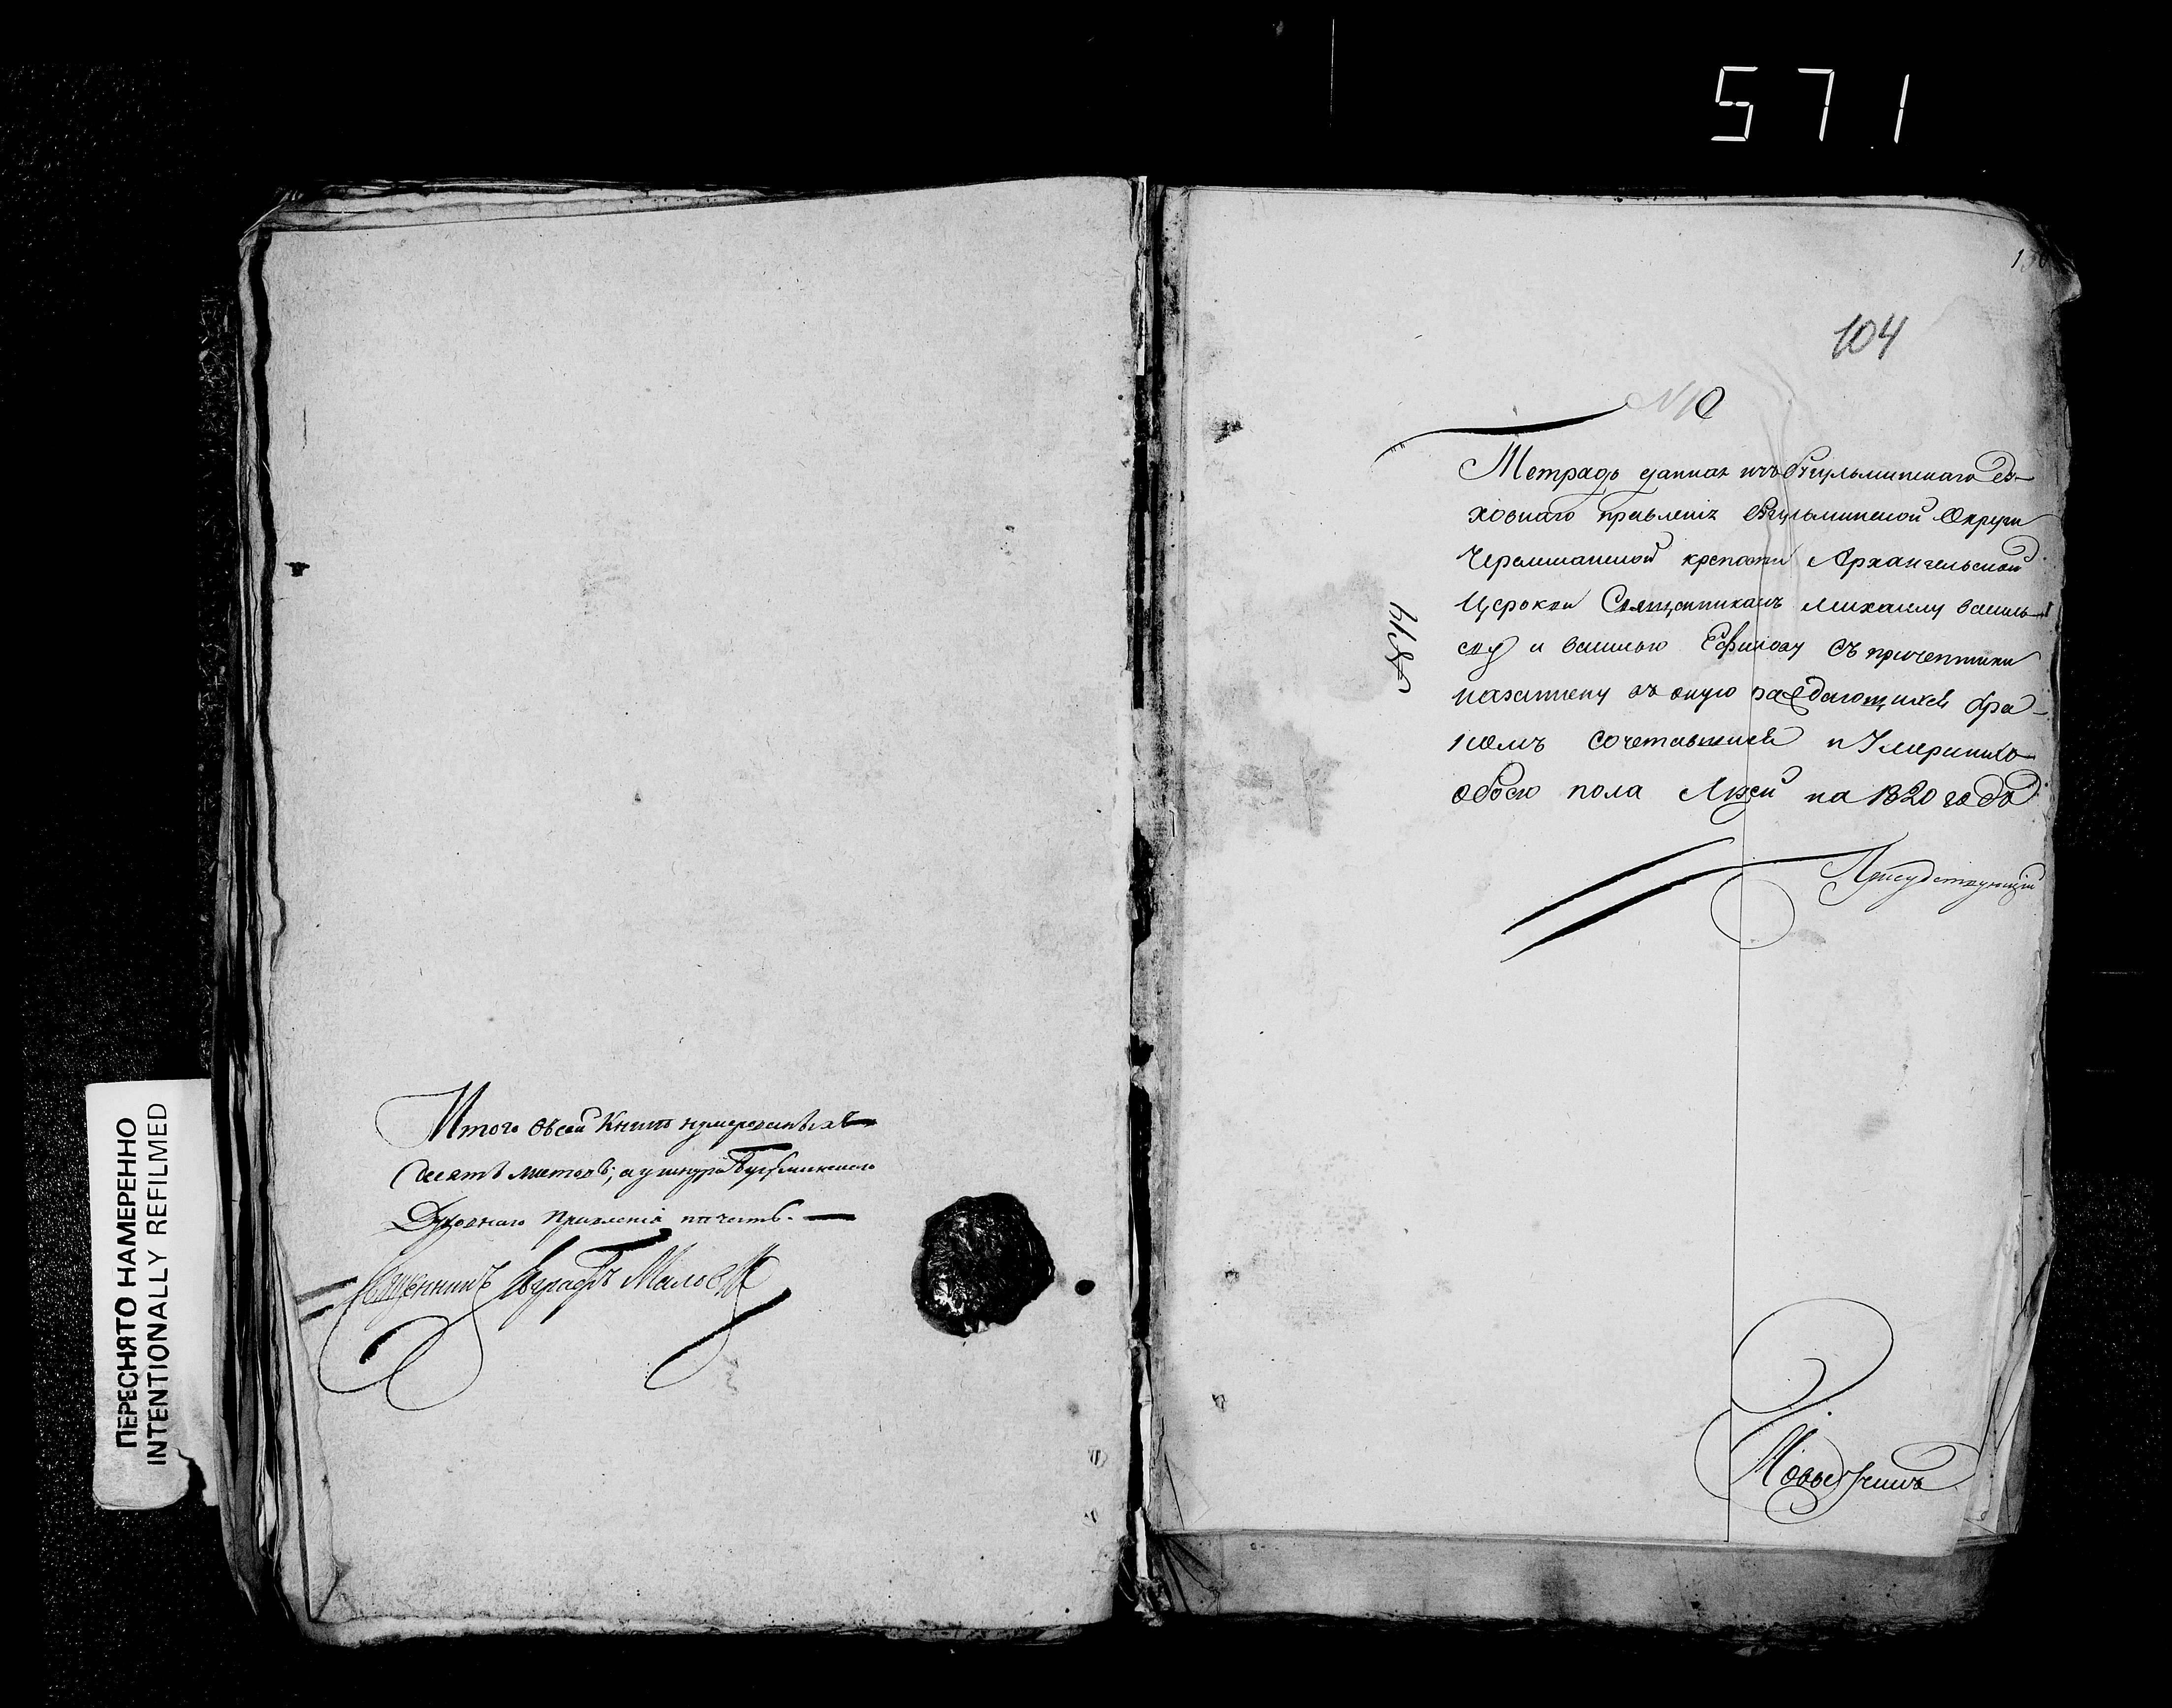 571
ПЕРЕСНЯТО НАМЕРЕННО
INTENTIONALLY REFILMED
Итого въ сей Книге нумерованныхъ
десять листовъ, а у шнура Бугульминскаго
Духовнаго Правленія печать.
Священникъ Евграфъ Маловъ
104
№
Тетрадь данная изъ Бугульминскаго ду-
ховнаго правленія Бугульминской Округи
Черемшанской крепости Архангельской
Церокви Священникамъ Михаилу Василь-
еву и Василью Ефимову съ причетники
на записку въ оную раждающихся бра-
комъ сочетавшихся и Умершихъ
обоего пола Людей на 1820 годъ
Присудствующій